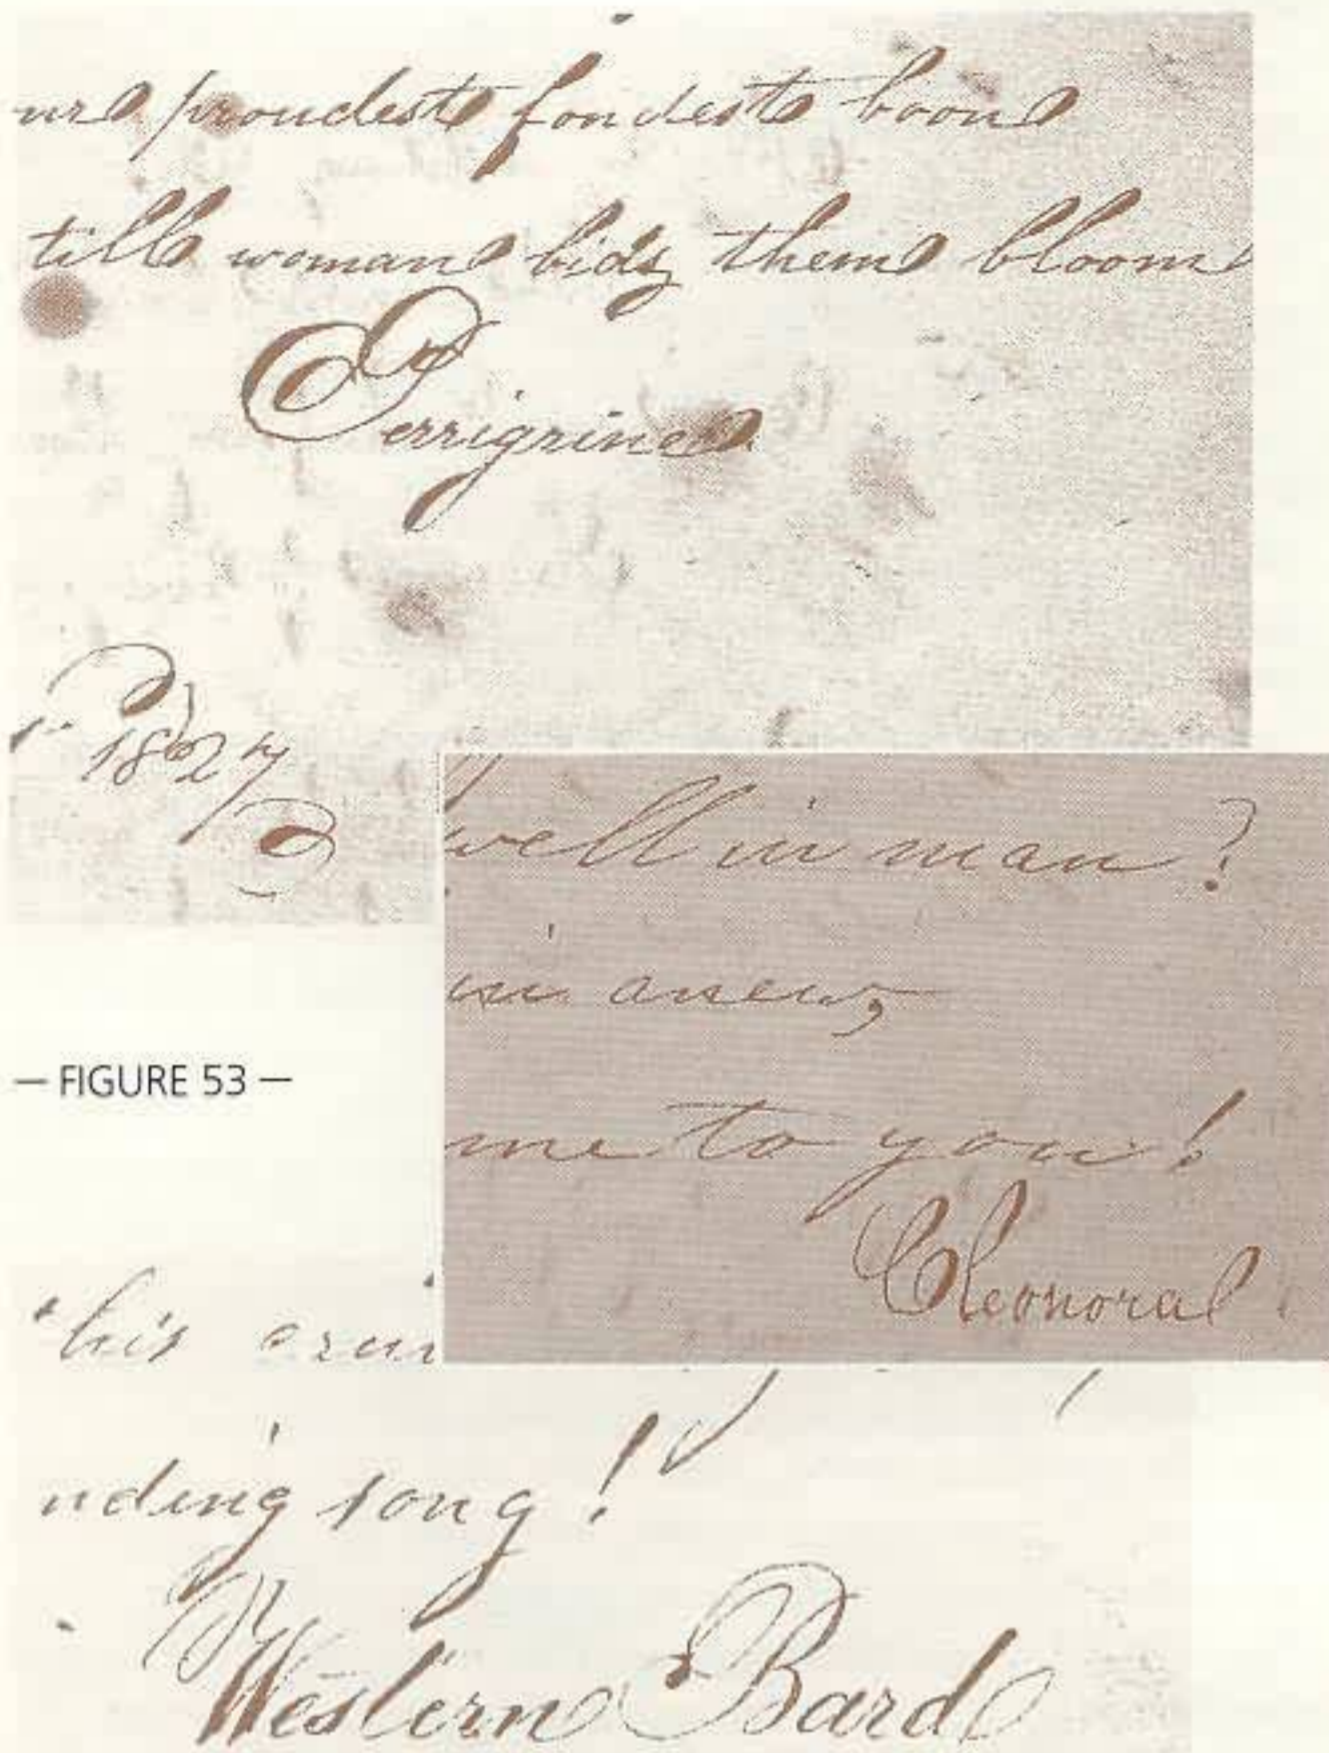 proudest fondest boon
till woman bids them bloom
Perrigrine
1827
well in man?
anew,
— FIGURE 53 —
me to you!
Cleonora.
his
nding song!
Western Bard